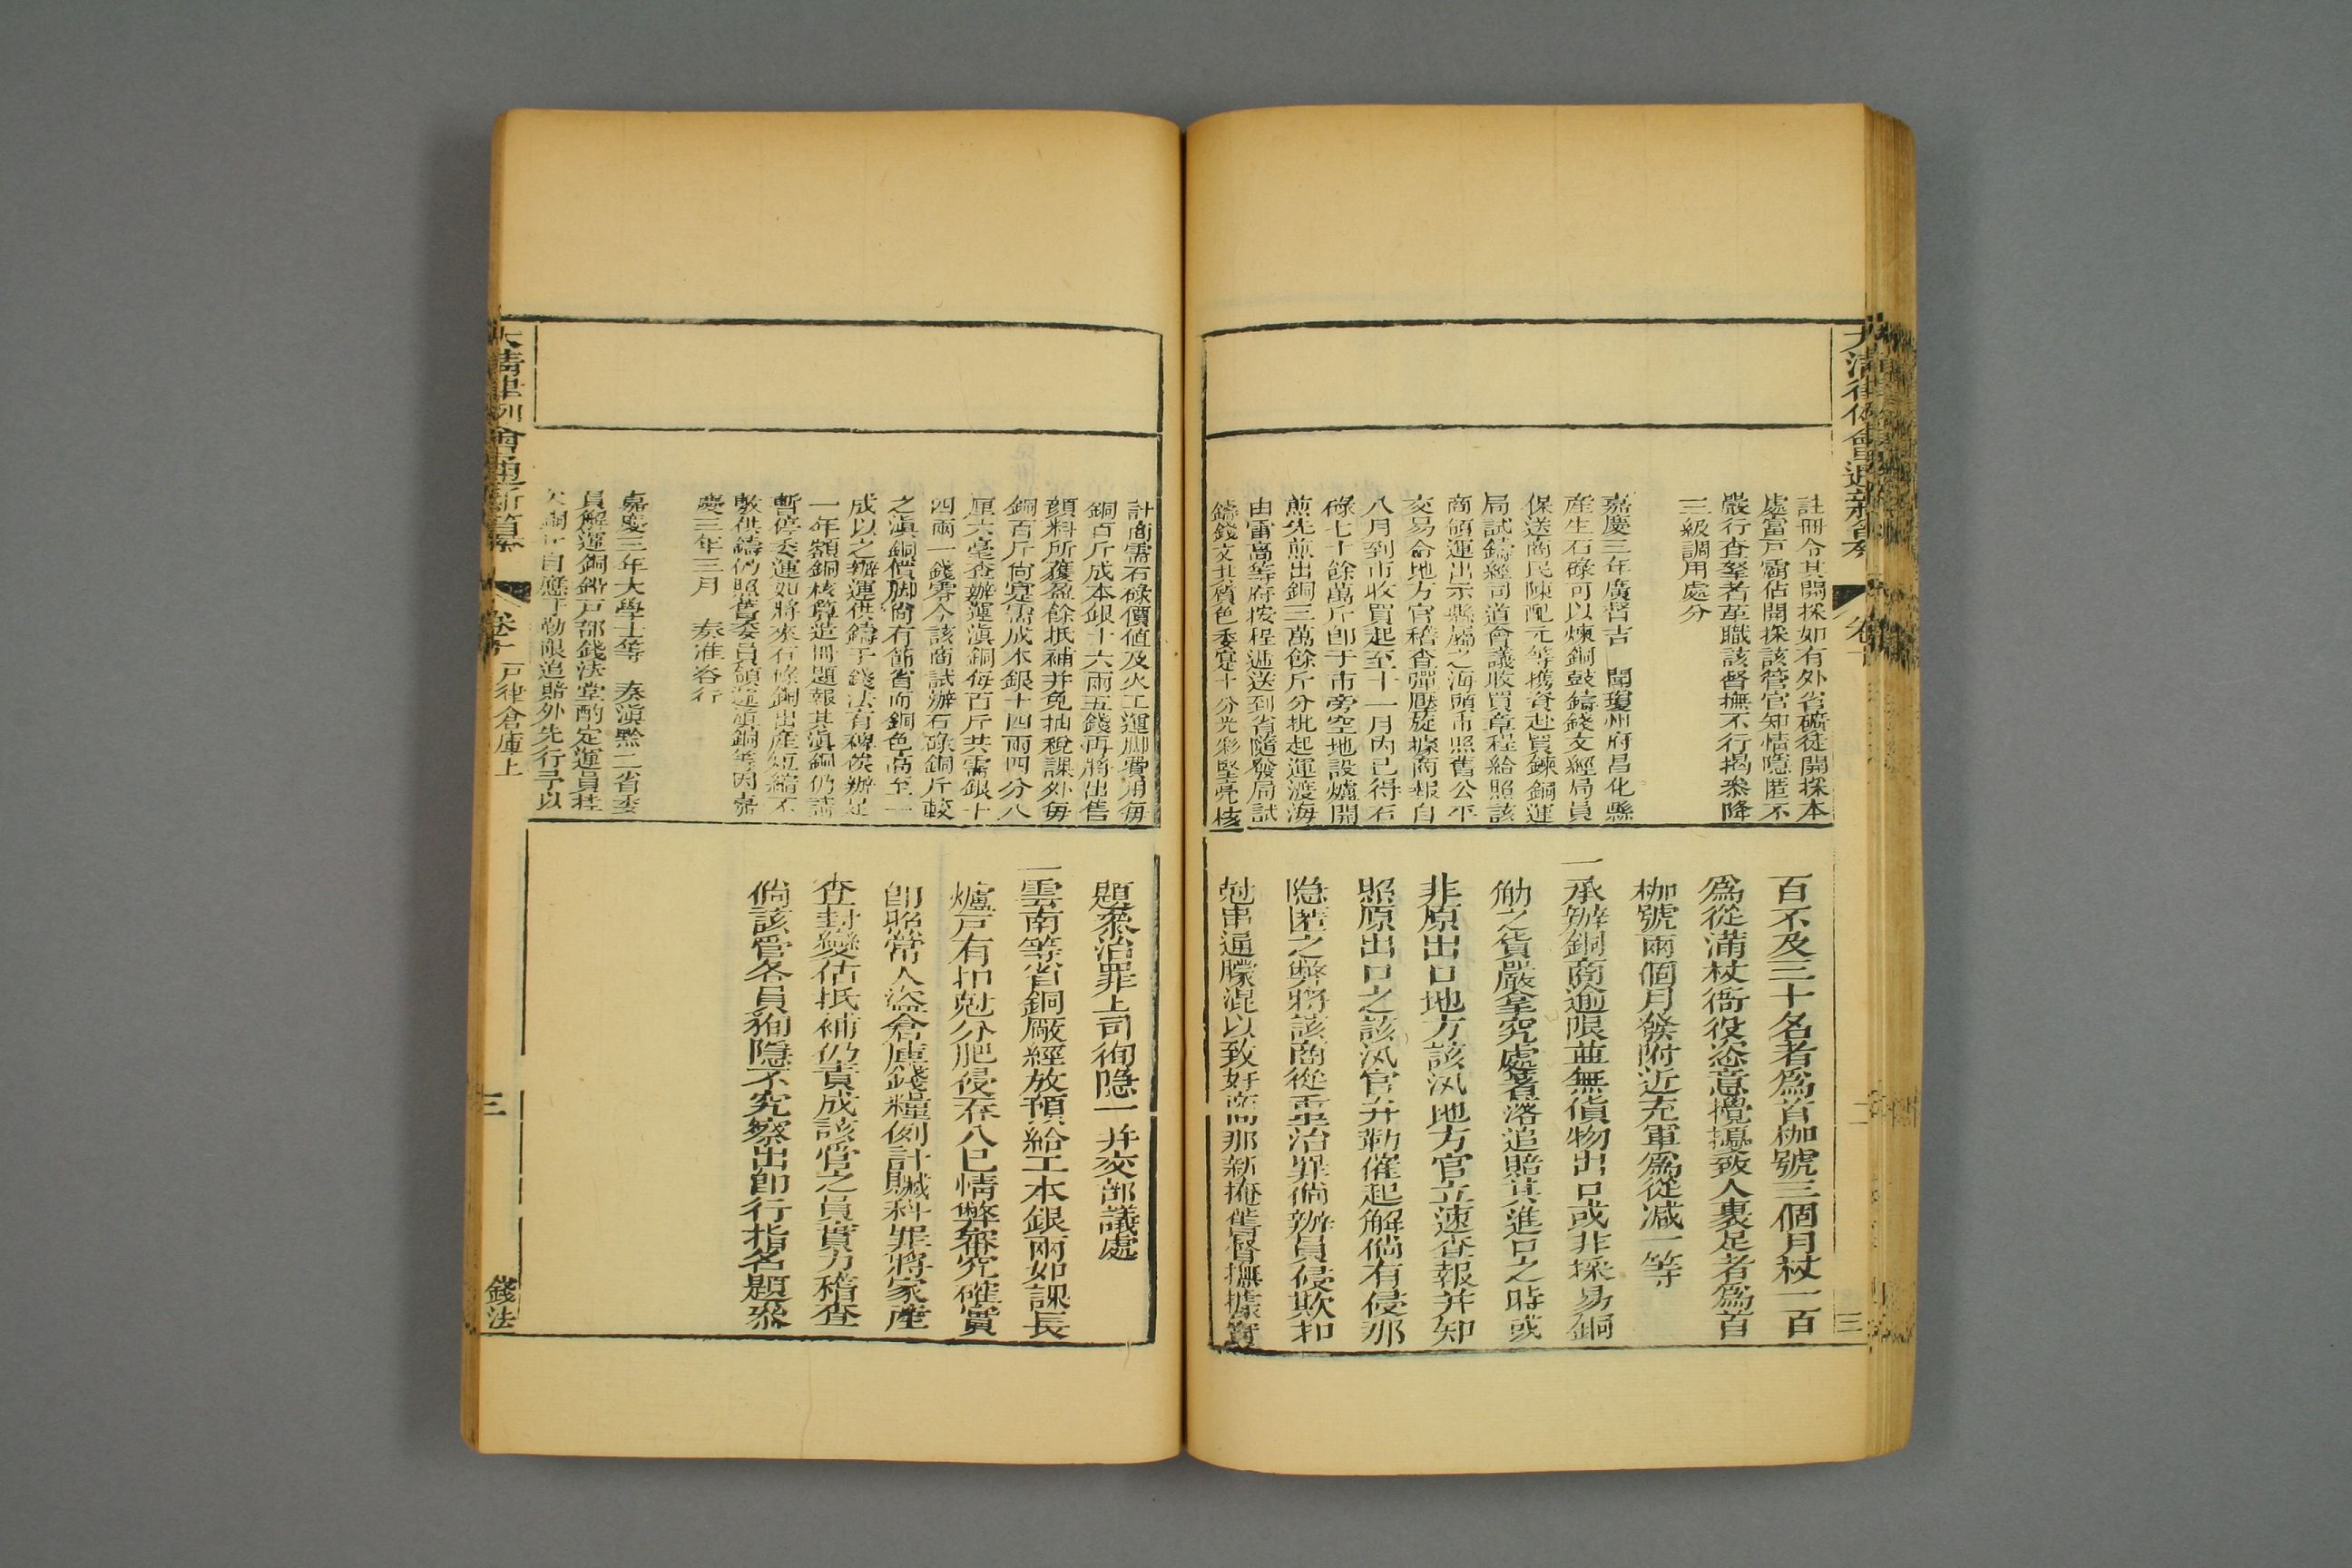 大清律例會通新纂
卷十
三
註冊令其開採如有外省礦徒開採本
處富戶霸佔開採該管官知情隱匿不
嚴行查拏者革職該督撫不行揭叅降
三級調用處分
嘉慶三年廣督吉 聞瓊州府昌化縣
產生石碌可以煉銅鼓鑄錢文經局員
保送商民陳配元等携資赴買鍊銅運
局試鑄經司道會議收買章程給照該
商領運出示縣屬之海頭市照舊公平
交易侖地方官稽查彈壓旋據商報自
八月到市收買起至十一月內已得石
碌七十餘萬斤即于市旁空地設爐開
煎先煎出銅三萬餘斤分批起運渡海
由雷高等府按程遞送到省隨發局試
鑄錢文其質色委寔十分光彩堅亮核
百不及三十名者爲首枷號三個月杖一百
爲從滿杖衙役恣意攪擾致人裹足者爲首
枷號兩個月發附近充軍爲從減一等
一承辦銅商逾限並無貨物出口或非採易銅
觔之貨嚴拿究處著落追賠其進口之時或
非原出口地方該汛地方官立速查報并知
照原出口之該汛官弁勒催起解倘有侵那
隱匿之弊將該商從重治罪倘辦員侵欺扣
尅串通朦混以致奸商那新掩舊督撫據實
計商需石碌價值及火工運脚費用每
銅百斤成本銀十六兩五錢再將出售
顔料所獲盈餘抵補并免抽稅課外每
銅百斤尙寔需成本銀十四兩四分八
厘六毫查辦運滇銅每百斤共需銀十
四兩一錢零今該商試辦石碌銅斤較
之滇銅價脚尙有節省而銅色高至一
成以之辦運供鑄于錢法有裨俟辦足
一年額銅核算造冊題報其滇銅仍請
暫停委運如將來石碌銅出產短縮不
敷供鑄仍照舊委員領運滇銅等因嘉
慶三年三月 奏准咨行
嘉慶三年大學士等 奏滇黔二省委
員解運銅鉛戶部錢法堂酌定運員掛
欠銅斤自應于勒限追賠外先行予以
題叅治罪上司徇隱一并交部議處
一雲南等省銅廠經放預給工本銀兩如課長
爐戶有扣尅分肥侵吞入已情弊審究確實
即照常人盜倉庫錢糧例計贓科罪將家產
查封變估抵補仍責成該管之員實力稽查
倘該管各員狥隱不究察出即行指名題叅
大清律例會通新纂
卷十 戶律倉庫上
三
錢法